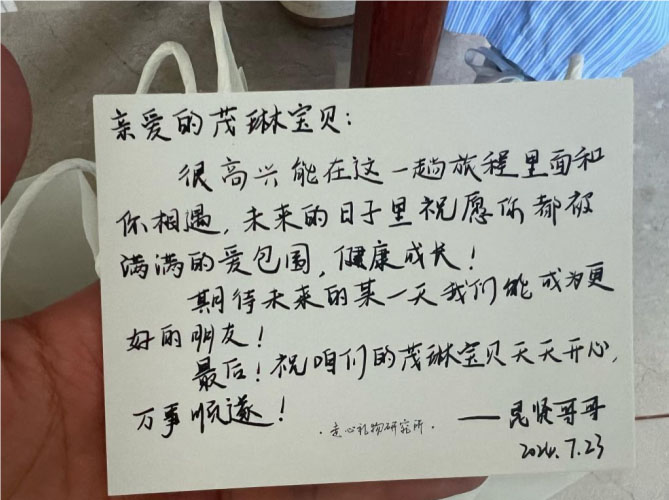 亲爱的茂琳宝贝:
很高兴能在这一趟旅程里面和
你相遇,未来的日子里祝愿你都被
满满的爱包围,健康成长!
期待未来的某一天我们能成为更
好的朋友!
最后!祝咱们的茂琳宝贝天天开心,
万事顺遂!
——昆贤哥哥
·走心礼物研究所·
2024.7.23